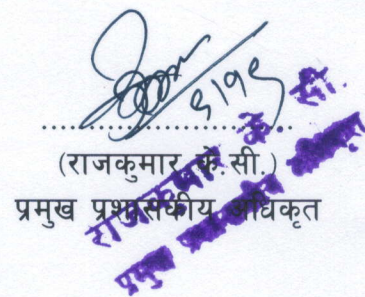 ९।११
(राजकुमार के.सी.)
प्रमुख प्रशासकीय अधिकृत
राजकुमार के.सी.
प्रमुख प्रशासकीय अधिकृत